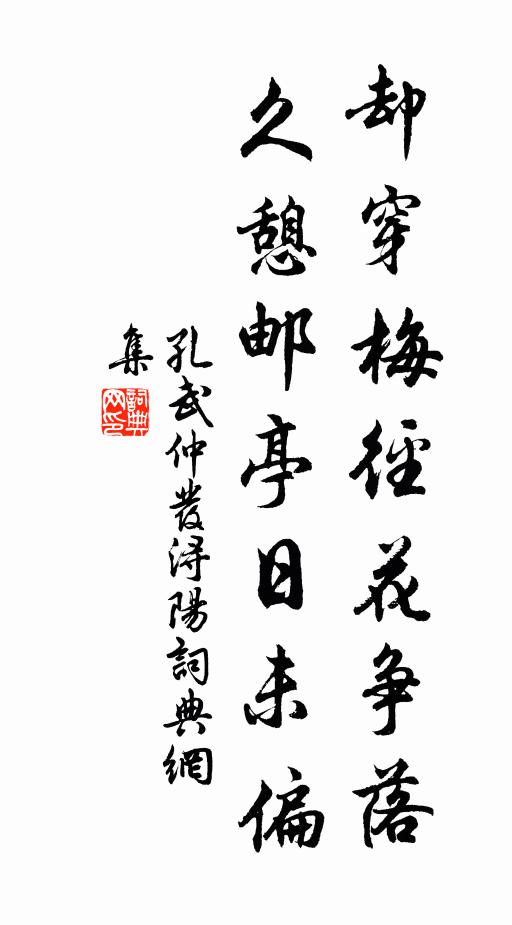 却穿梅径花争落
久憩邮亭日未偏
孔武仲發浔陽詞典網
集
詞典
网印